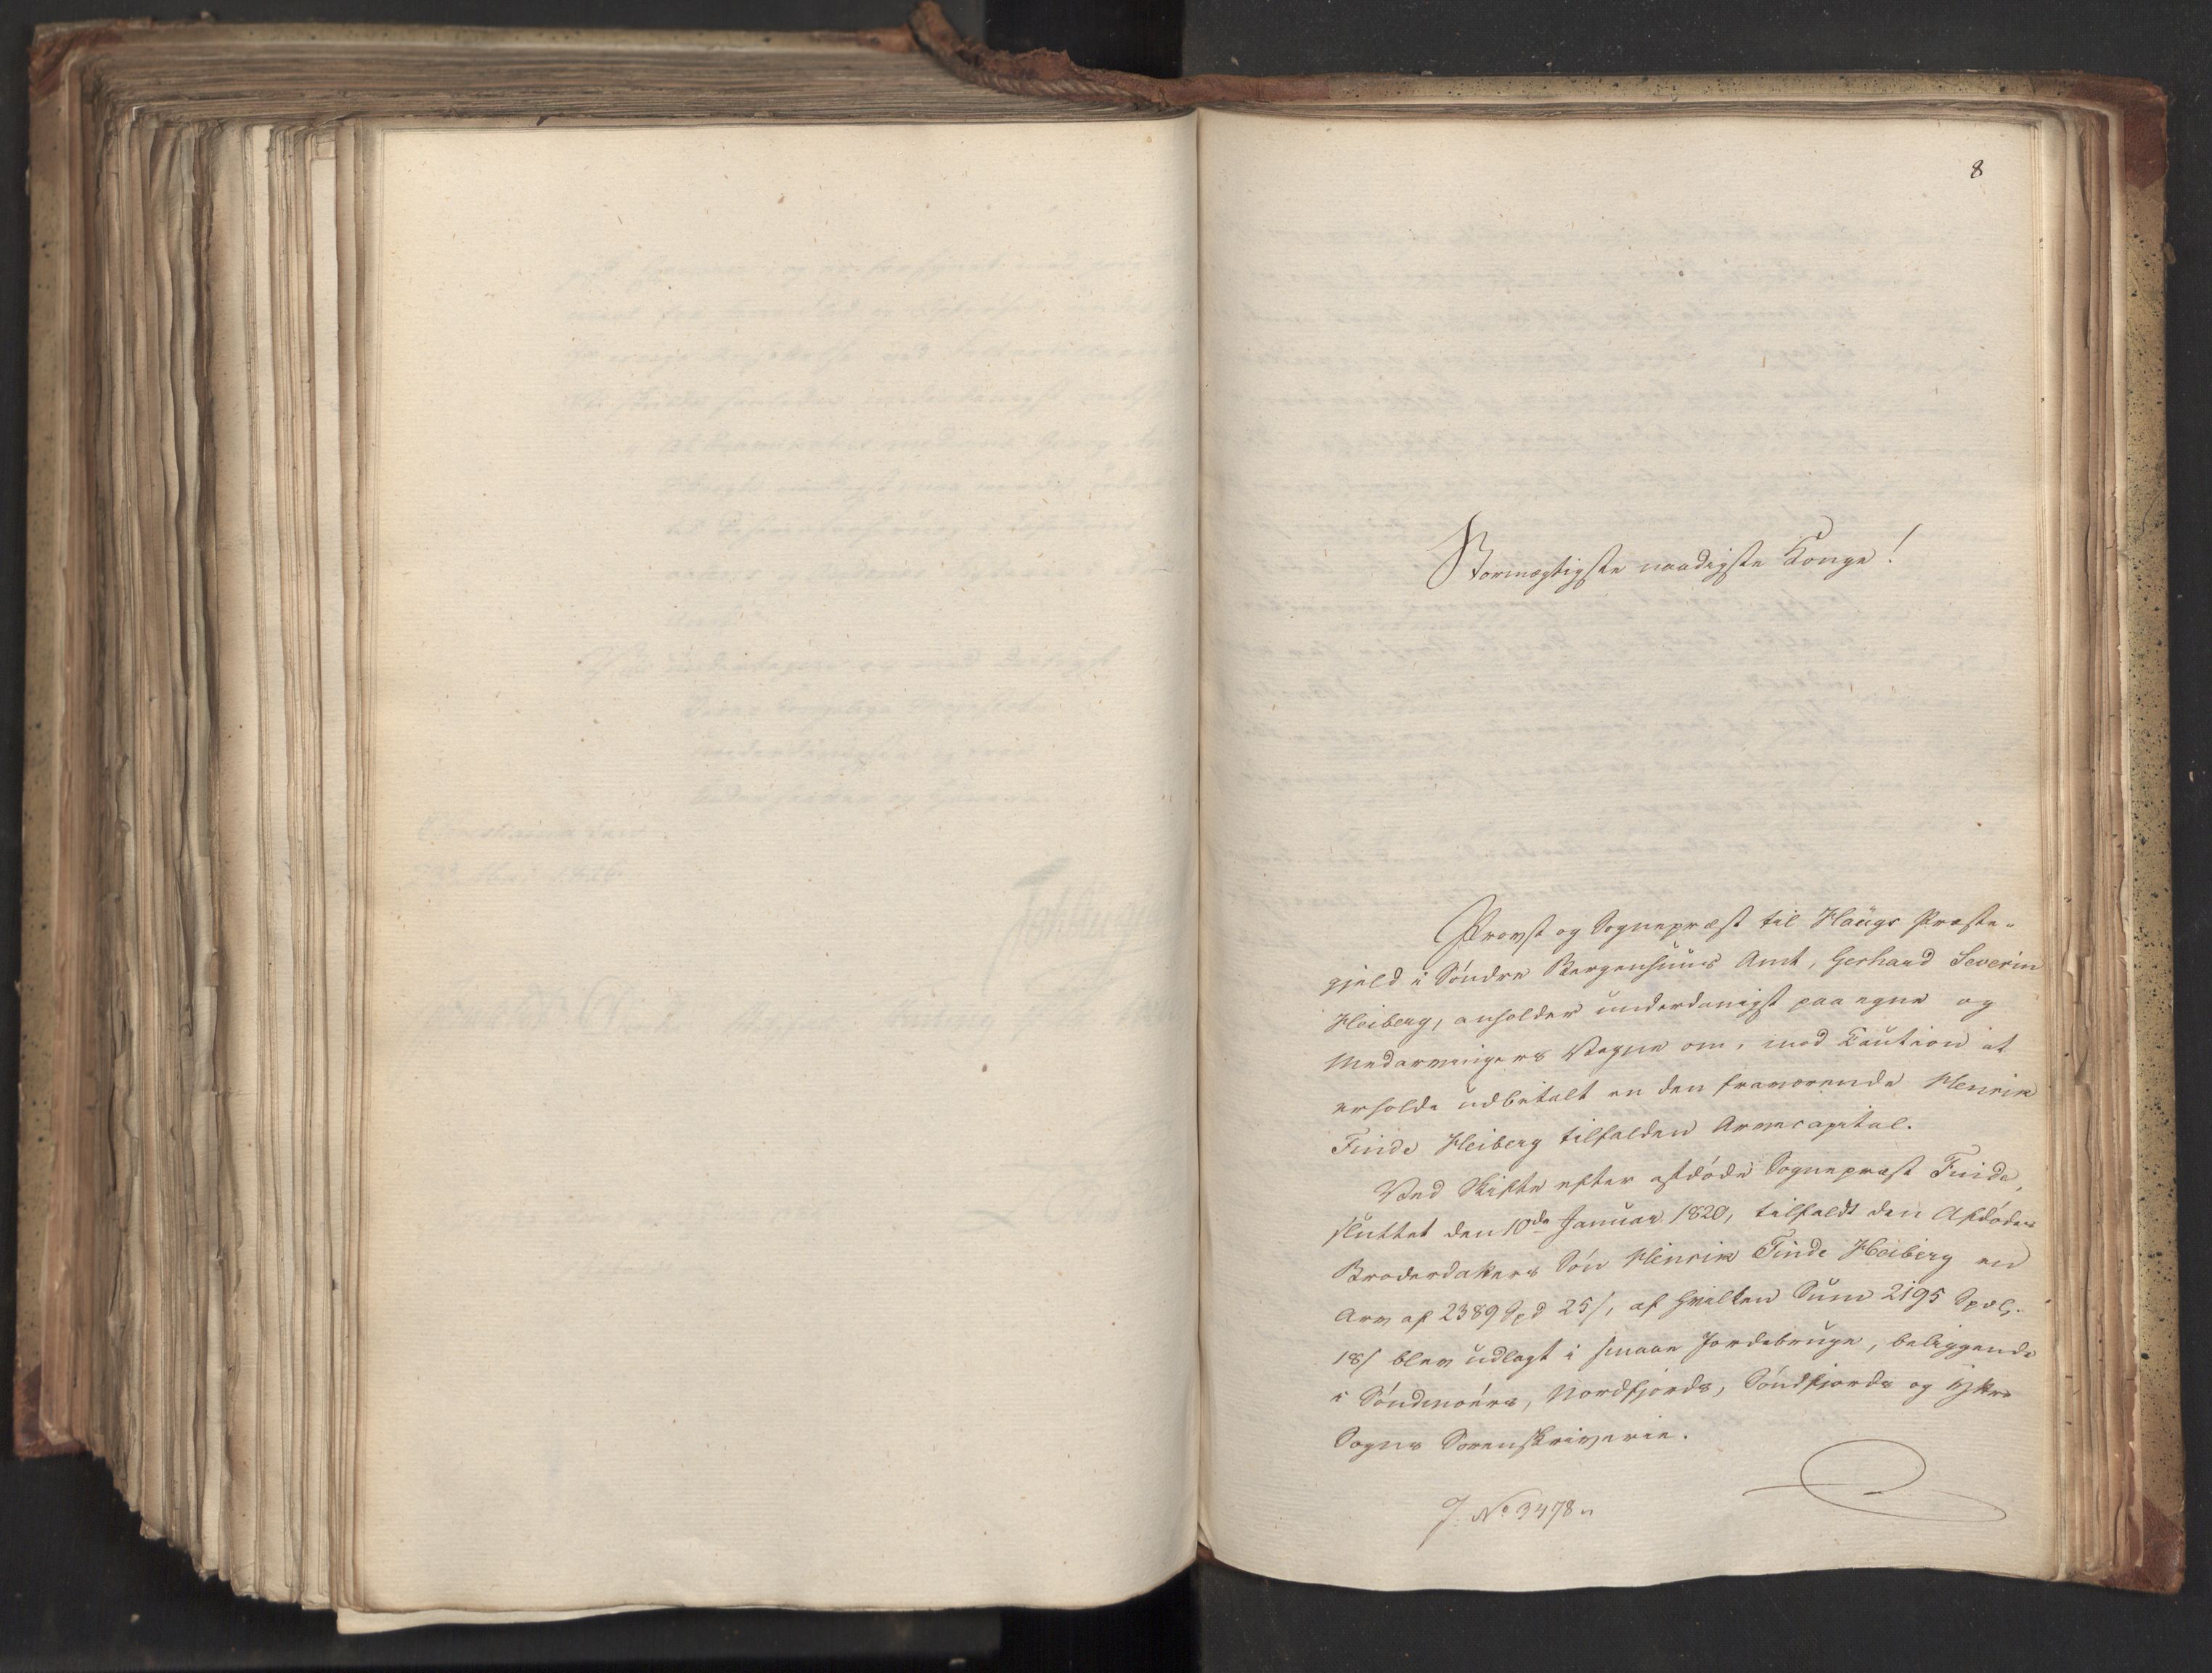 8
Stormægtigste naadigste Konge!
Provst og Sognepræst til Haugs Præste-
gjeld i Söndre Bergenhuus Amt, Gerhard Severin
Heiberg, anholder underdanigst paa egne og
Medarvingers Vegne om, mod Caution at
erholde udbetalt en den fraværende Henrik
Finde Heiberg tilfalden Arvecapital.
Ved Skifte efter afdöde Sognepræst Finde,
sluttet den 10de Januar 1820, tilfaldt den Afdödes
Broderdatters Sön Henrik Finde Heiberg en
Arv af 2389 Spd 25 s, af hvilken Sum 2195 Spd.
18 s blev udlagt i smaae Jordebruge, beliggende
i Söndmöers, Nordfjords, Söndfjords og Yttre
Sogns Sorenskriverie.
J. No 3478